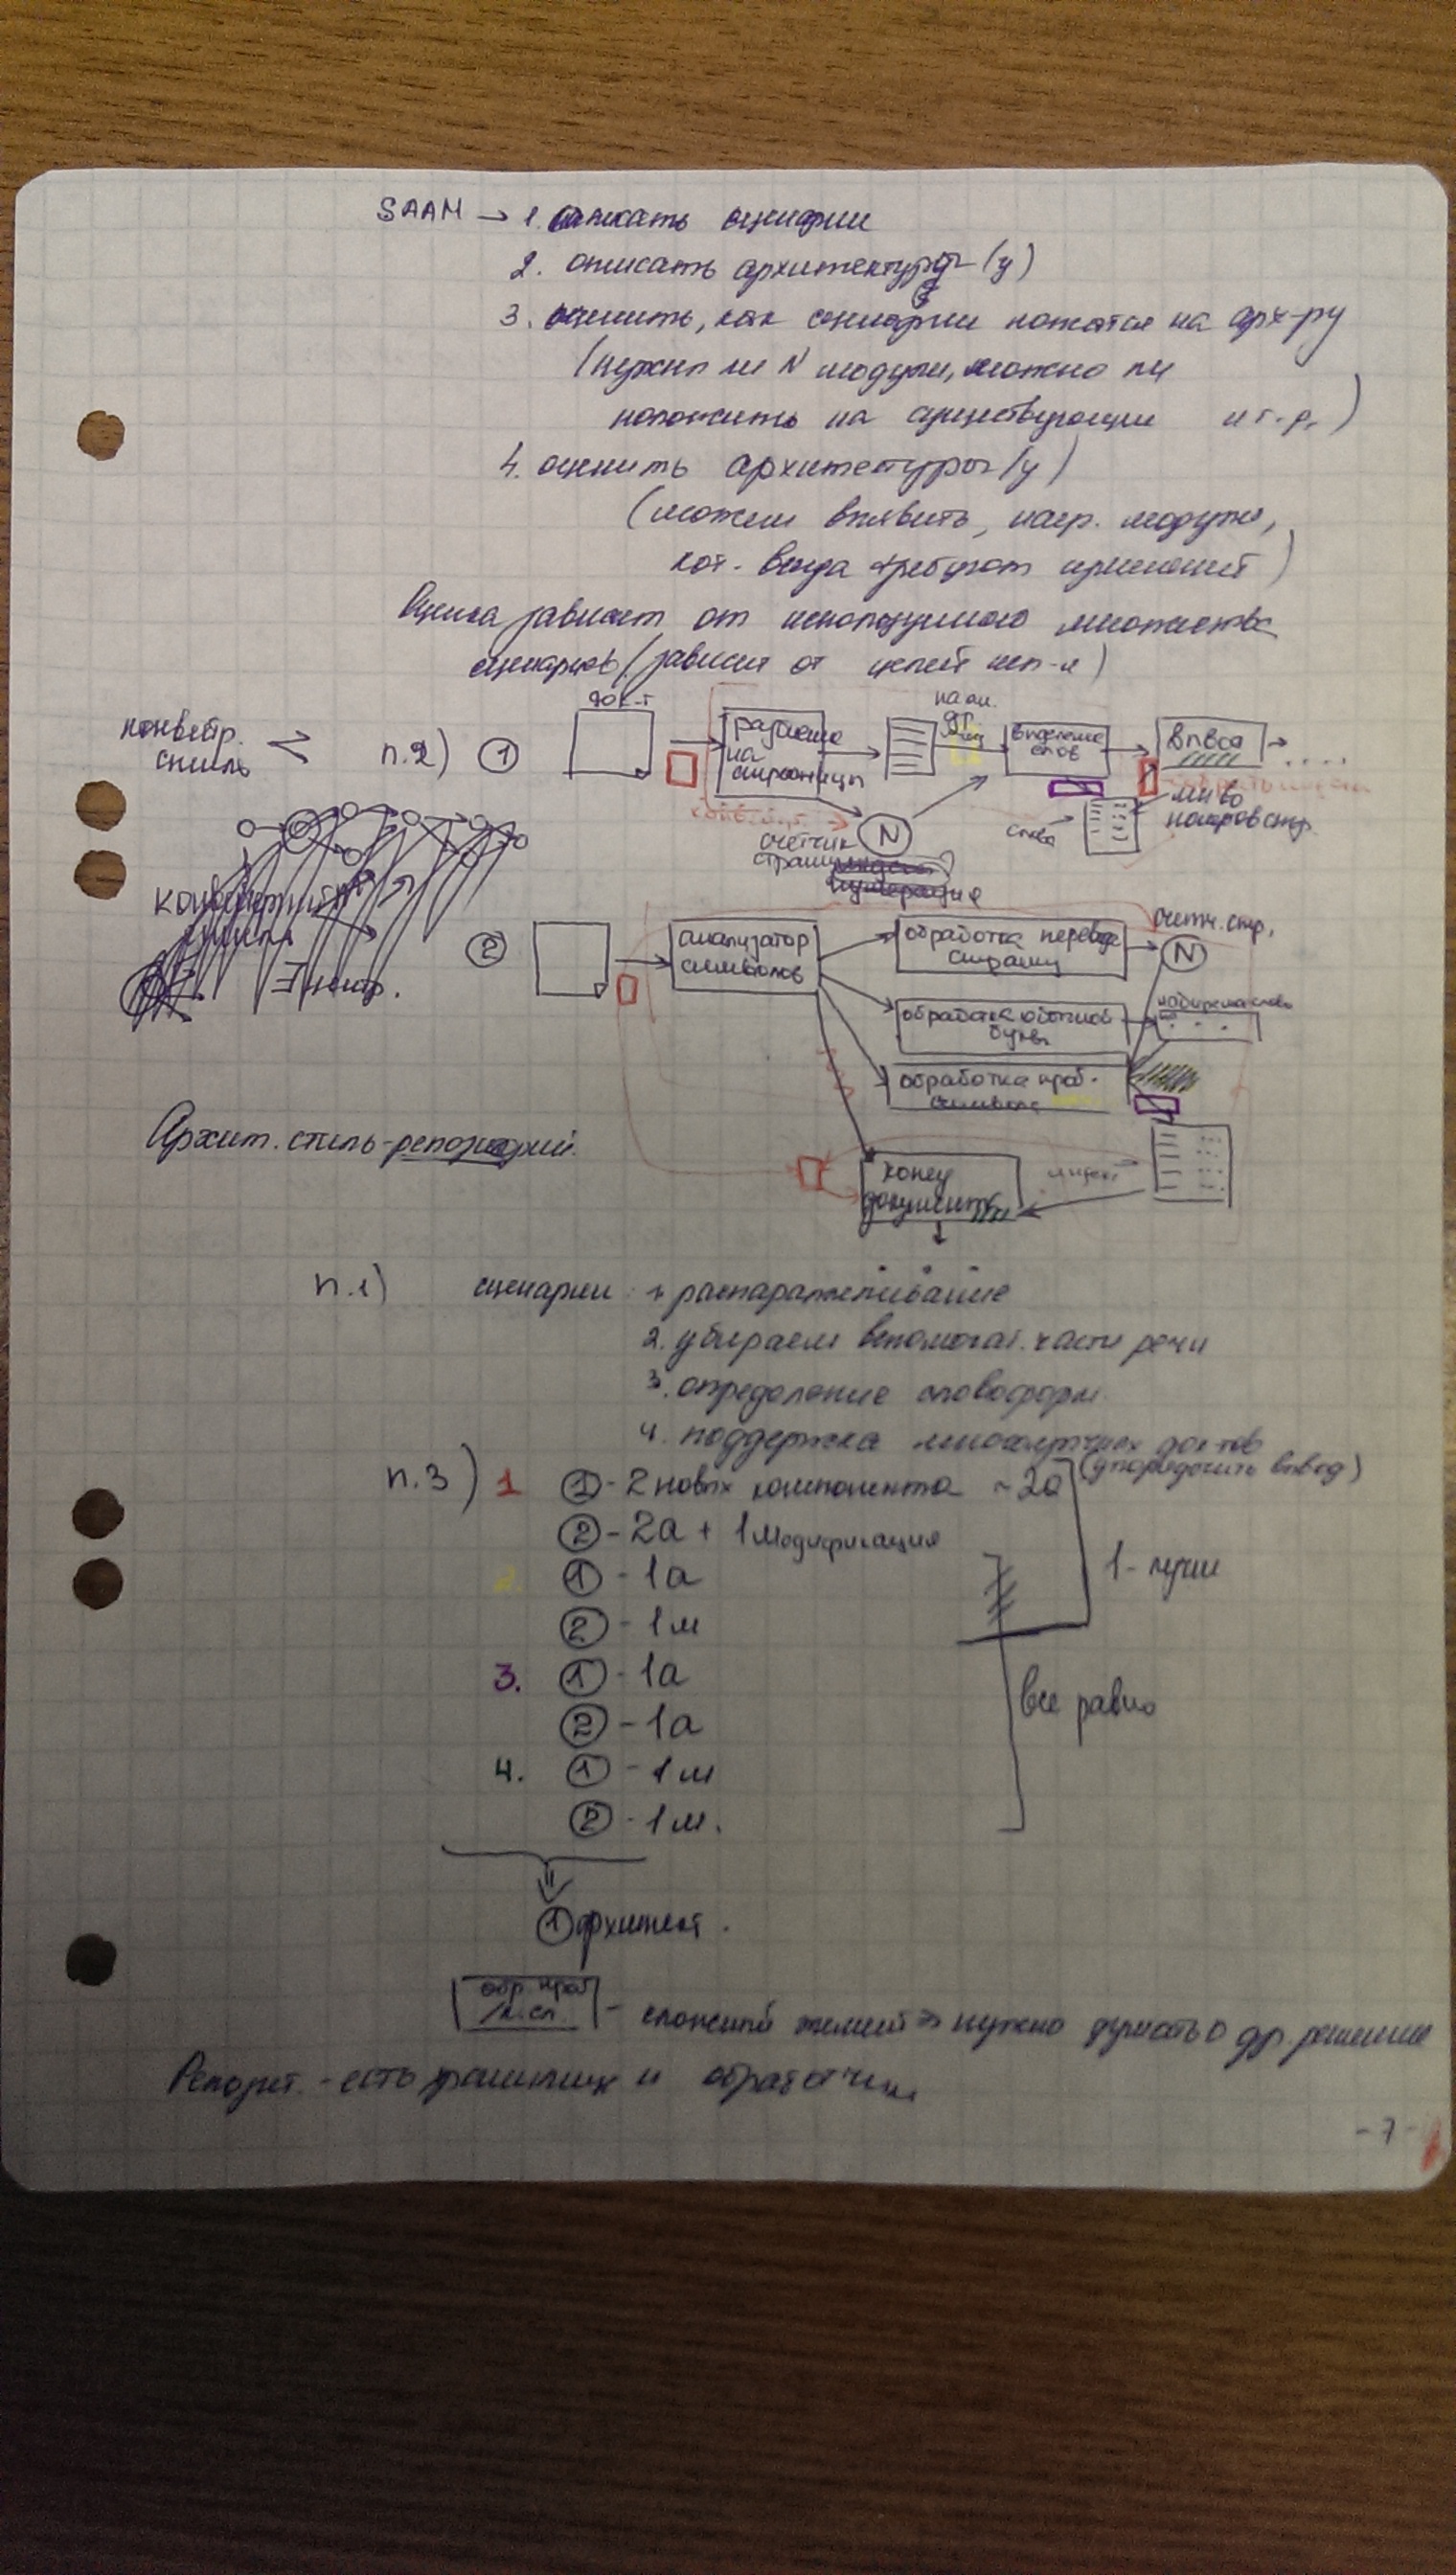 SAAM → 1. описать сценарии
2. описать архитектуры (у)
3. оценить, как сценарии ложатся на арх-ру
(нужны ли N модули, можно ли
положить на существующие и т.д.)
4. оценить архитектуры (у)
(можем выявить, напр. модули,
кот. всегда требуют изменений)
Оценка зависит от используемого множества
сценариев (зависит от целей исп-я)
док-т
конвейр. стиль
п.2) ①
разбиение на страницы
выделение слов
вывод
счетчик страниц
N
слова
мн-во номеров стр.
②
анализатор символов
обработка перевода страниц
счетч. стр.
N
обработка обычной буквы
обработка проб. символа
Архит. стиль-репозиторий.
конец документа
п.1) сценарии: 1. распараллеливание
2. убираем вспомогат. части речи
3. определение словоформ
4. поддержка доктов
(упорядочить вывод)
п.3) 1 ① - 2 новых компонента ~ 2а
② - 2а + 1 модификация
2. ① - 1а
1 - лучше
② - 1м
3. ① - 1а
все равно
② - 1а
4. ① - 1м
② - 1м.
① архитект.
обр. проб
- сложный => нужно думать о др. решении
Репозит. - есть хранилище и обработчики
- 7 -